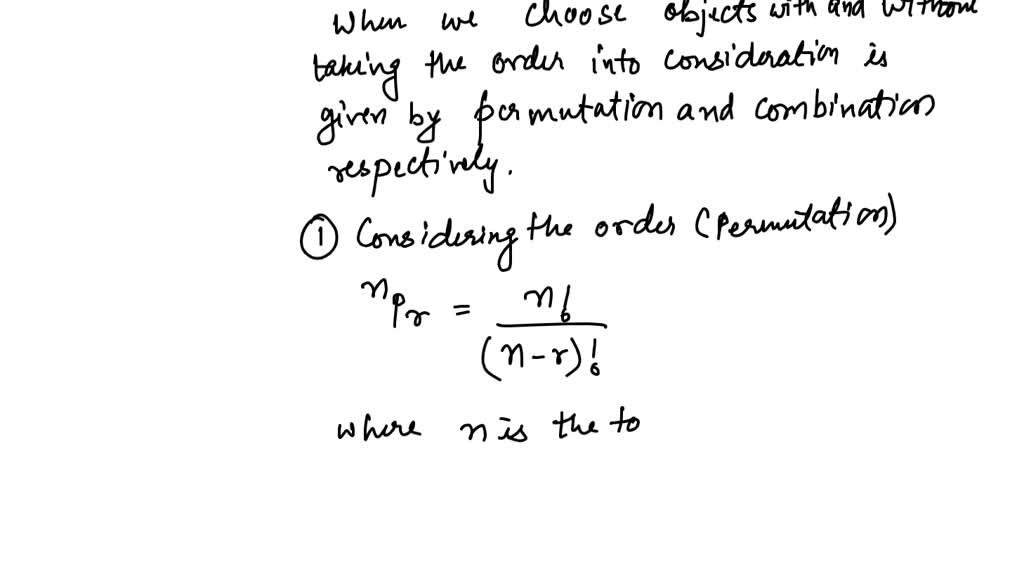 When we choose objects with and without
taking the order into consideration is
given by permutation and combination
respectively.
① Considering the order (Permutation)
ⁿPᵣ = n! / (n-r)!
where n is the to